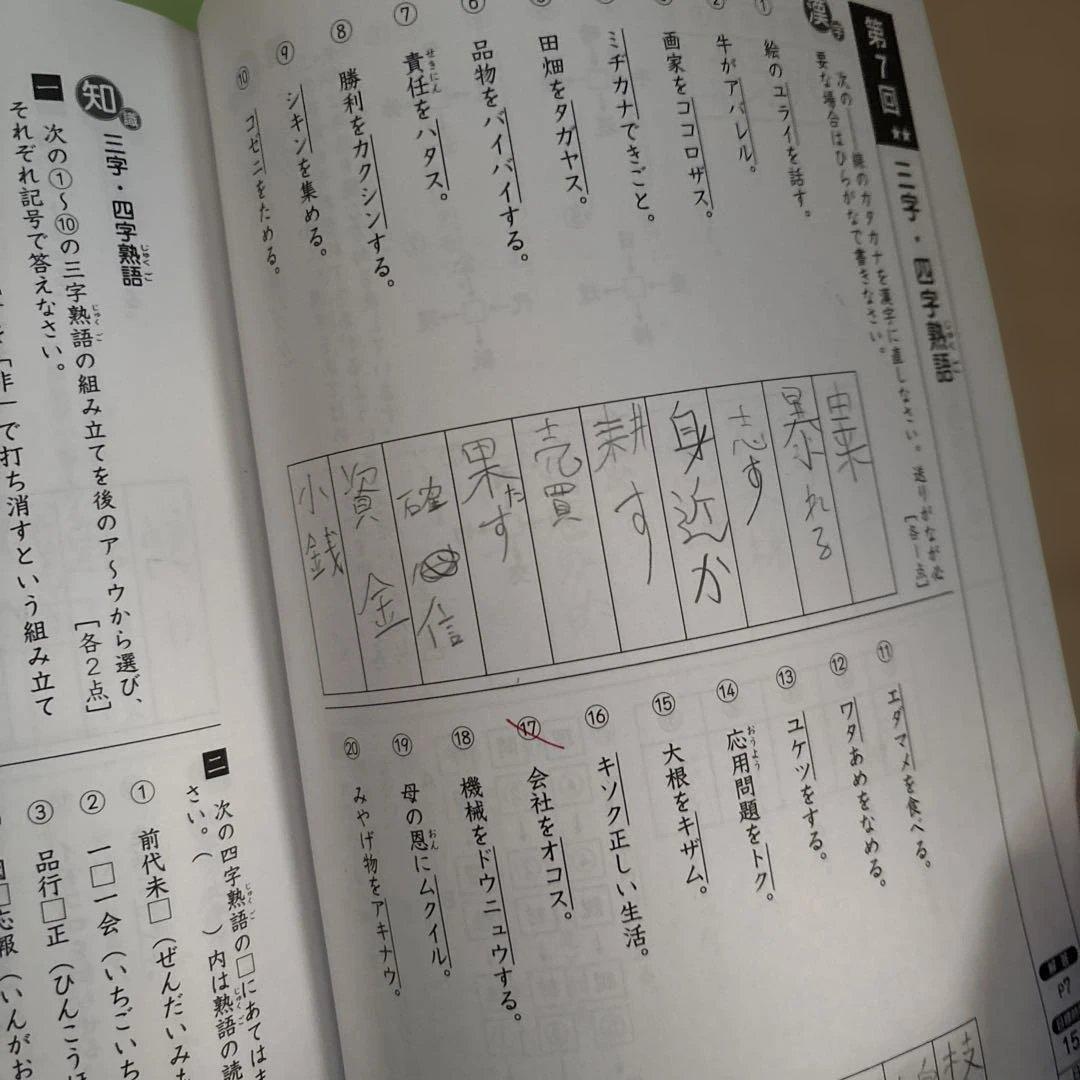 第7回
★★
三字・四字熟語
じゅくご
漢字
次の――線のカタカナを漢字に直しなさい。送りがなが必
要な場合はひらがなで書きなさい。
[各1点]
① 絵のユライを話す。
② 牛がアバレル。
画家をココロザス。
ミヂカナできごと。
田畑をタガヤス。
⑥ 品物をバイバイする。
⑦ 責任をハタス。
せきにん
⑧ 勝利をカクシンする。
⑨ シキンを集める。
⑩ コゼニをためる。
由来
暴れる
志す
身近か
耕す
売買
果たす
確信
資金
小銭
⑪ エダマメを食べる。
⑫ ワタあめをなめる。
⑬ ユケツをする。
⑭ 応用問題をトク。
おうよう
⑮ 大根をキザム。
⑯ キソク正しい生活。
⑰ 会社をオコス。
⑱ 機械をドウニュウする。
⑲ 母の恩にムクイル。
おん
⑳ みやげ物をアキナウ。
枝
解答
P7
15
知識
三字・四字熟語
じゅくご
一 次の①〜⑩の三字熟語の組み立てを後のア〜ウから選び、
じゅくご
それぞれ記号で答えなさい。
[各2点]
で打ち消すという組み立て
二 次の四字熟語の□にあてはま
じゅくご
さい。( )内は熟語の読
じゅくご
① 前代未□(ぜんだいみ
② 一□一会(いちごいち
③ 品行□正(ひんこうほ
□応報(いんがお